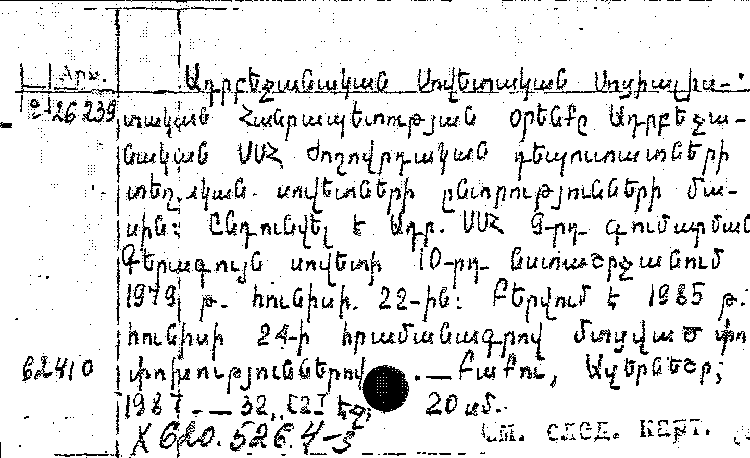 Արխ. Ադրբեջանական Սովետական Սոցիալիս-
26239 տական Հանրապետության օրենքը Ադրբեջա-
նական ՍՍՀ ժողովրդական դեպուտատների
տեղական սովետների ընտրությունների մա-
սին: Ընդունվել է Ադր. ՍՍՀ 9-րդ գումարման
Գերագույն սովետի 10-րդ նստաշրջանում
1979 թ. հունիսի 22-ին: Բերվում է 1985 թ.
հունիսի 24-ի հրամանագրով մտցված փո
62410 փոխություններով. — Բաքու, Ազերնեշր,
1987. — 32, [2] էջ; 20 սմ.
X 620.526.4-3 См. след. карт.